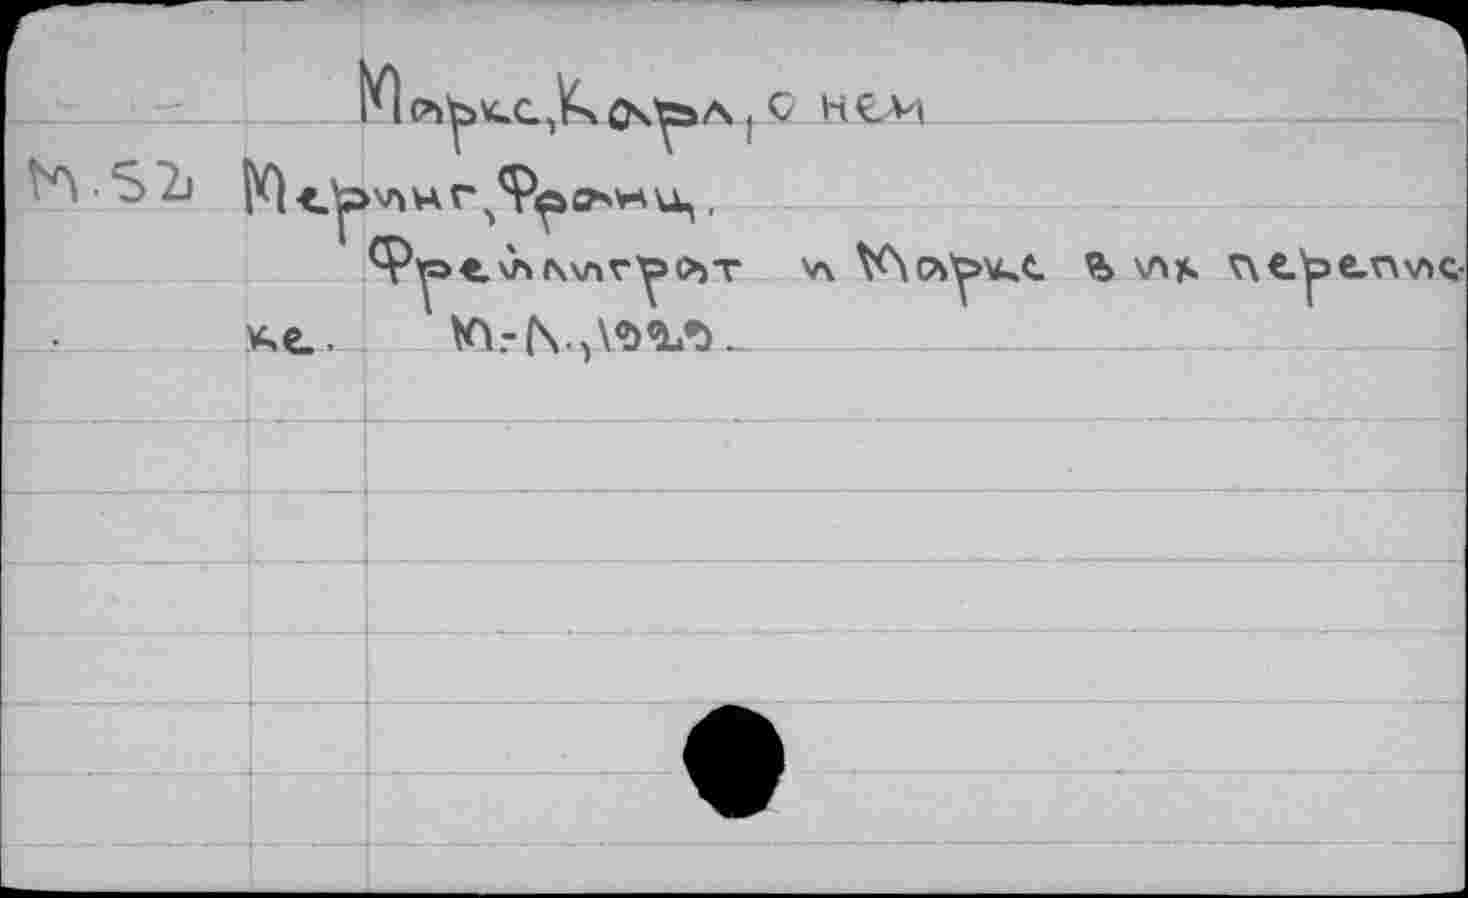 Маркс, Карл, о нем
М.52 Меринг, Франц.
Фрейлиграт и Маркс в их переписке. М.-Л., 1929.